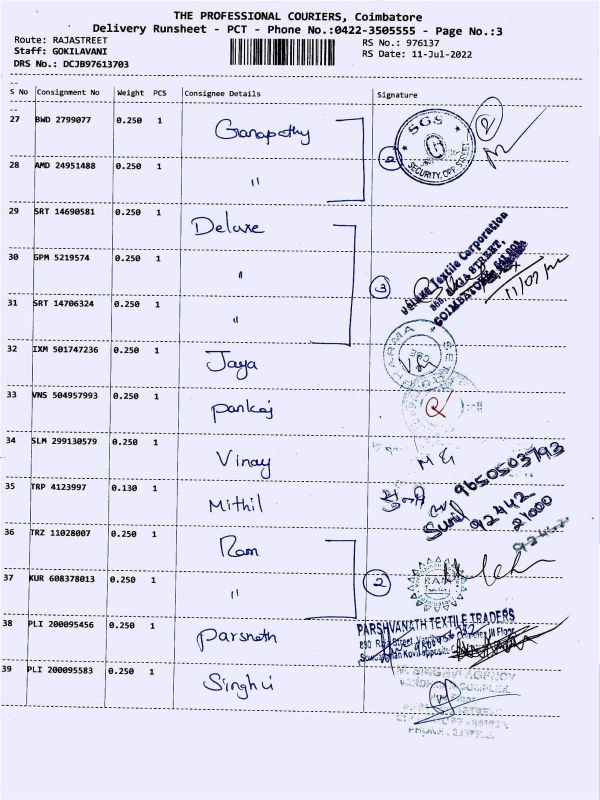 THE PROFESSIONAL COURIERS, Coimbatore
Delivery Runsheet - PCT - Phone No.:0422-3505555 - Page No.:3
Route: RAJASTREET RS No.: 976137
Staff: GOKILAVANI RS Date: 11-Jul-2022
DRS No.: DCJB97613703
S No Consignment No Weight PCS Consignee Details Signature
27 BWD 2799077 0.250 1 Ganapathy
28 AMD 24951488 0.250 1 "
SGS
SECURITY, OPP STREET
2
29 SRT 14690581 0.250 1 Deluxe
30 GPM 5219574 0.250 1 "
31 SRT 14706324 0.250 1 "
3
Deluxe Textile Corporation
11/07
32 IXM 501747236 0.250 1 Jaya
33 VNS 504957993 0.250 1 Pankaj
34 SLM 299130579 0.250 1 Vinay
35 TRP 4123997 0.130 1 Mithil
9650503793
Sunil 92442
21000
92442
36 TRZ 11028007 0.250 1 Ram
37 KUR 608378013 0.250 1 "
2
RAM
38 PLI 200095456 0.250 1 Parsnath
PARSHVANATH TEXTILE TRADERS
39 PLI 200095583 0.250 1 Singhvi
AGENCY